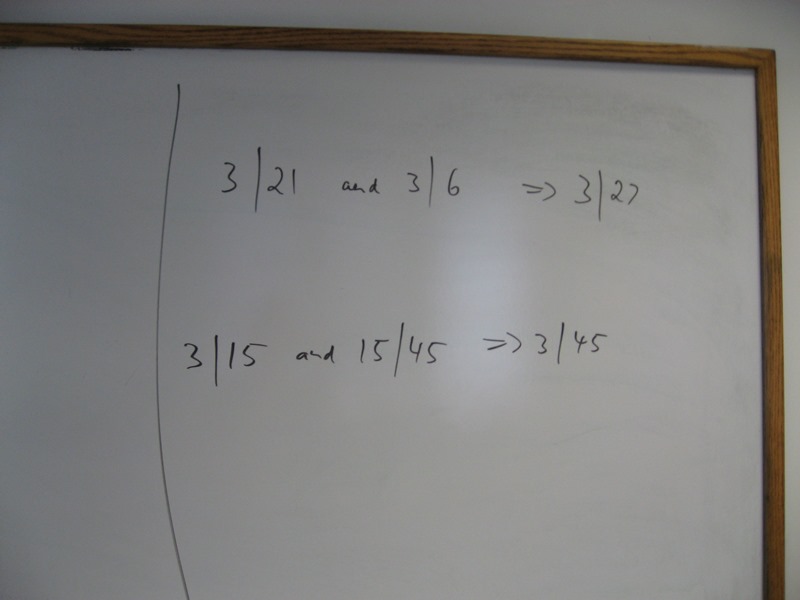 3 | 21 and 3 | 6 => 3 | 27
3 | 15 and 15 | 45 => 3 | 45